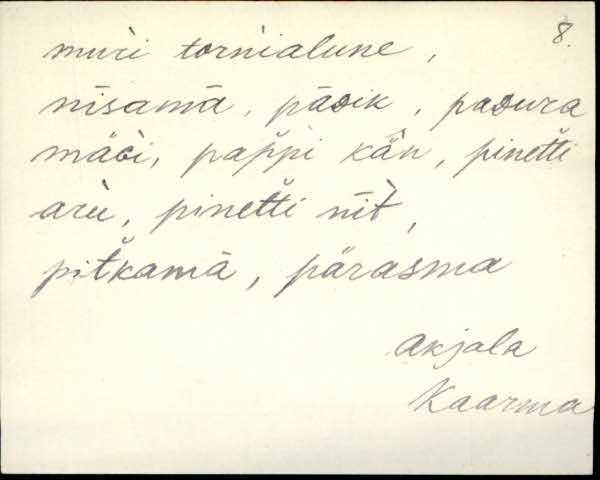 8.
muri tornialune,
nīsamā, pāʚik, paʚura
māʚi, pap̆pi kǟn, pinet̆ti
arù, pinet̆ti nīt,
pit̆kamā, pärasma
Akjala
Kaarma